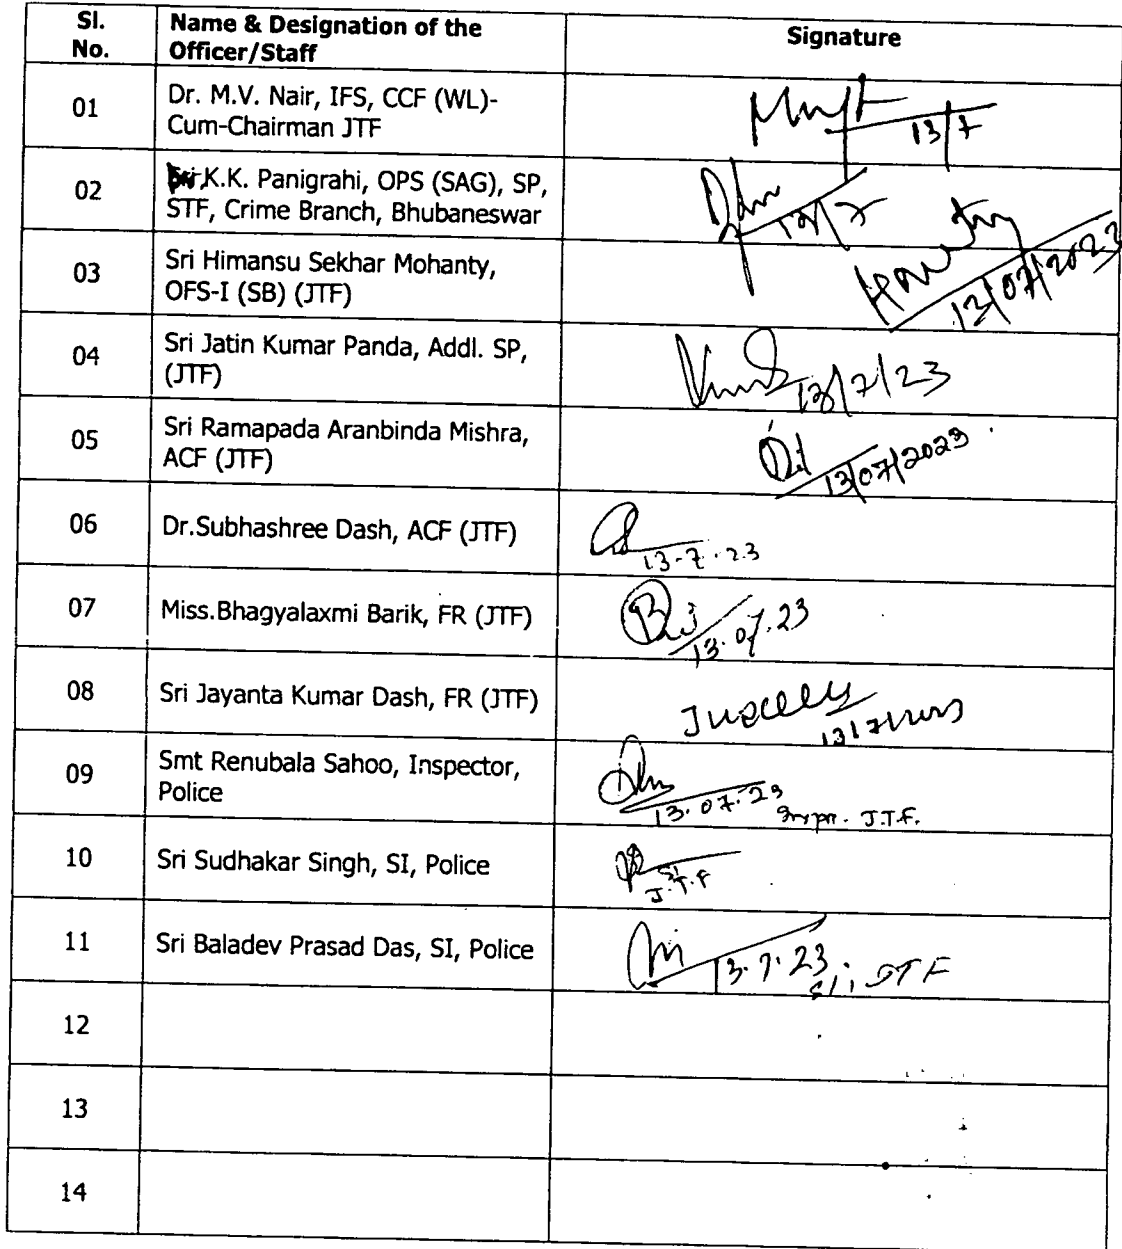 Sl. No.
Name & Designation of the Officer/Staff
Signature
01
Dr. M.V. Nair, IFS, CCF (WL)-
Cum-Chairman JTF
13/7
02
K.K. Panigrahi, OPS (SAG), SP,
STF, Crime Branch, Bhubaneswar
13/7
03
Sri Himansu Sekhar Mohanty,
OFS-I (SB) (JTF)
13/07/2023
04
Sri Jatin Kumar Panda, Addl. SP,
(JTF)
13/7/23
05
Sri Ramapada Aranbinda Mishra,
ACF (JTF)
13/07/2023
06
Dr.Subhashree Dash, ACF (JTF)
13-7.23
07
Miss.Bhagyalaxmi Barik, FR (JTF)
13.07.23
08
Sri Jayanta Kumar Dash, FR (JTF)
09
Smt Renubala Sahoo, Inspector,
Police
13.07.23
J.T.F.
10
Sri Sudhakar Singh, SI, Police
SI
J.T.F
11
Sri Baladev Prasad Das, SI, Police
13.7.23.
JTF
12
13
14